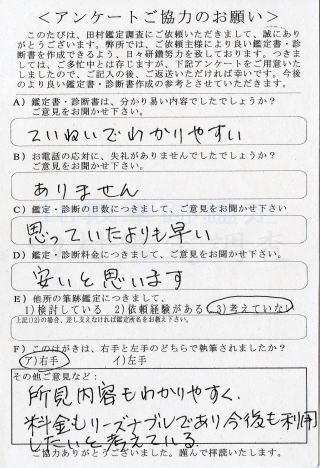 ＜アンケートご協力のお願い＞
このたびは、田村鑑定調査にご依頼いただきまして、誠にあり
がとうございます。弊所では、ご依頼主様により良い鑑定書・診
断書を作成できるよう、日々研鑽努力を致しております。つきま
しては、ご多忙中とは存じますが、下記アンケートをご用意いた
しましたので、ご記入の後、ご返送いただければ幸いです。今後
のより良い鑑定書・診断書作成の参考とさせていただきます。
A）鑑定書・診断書は、分かり易い内容でしたでしょうか？
ご意見をお聞かせ下さい。
ていねいでわかりやすい
B）お電話の応対に、失礼がありませんでしたでしょうか？
ご意見をお聞かせ下さい。
ありません
C）鑑定・診断の日数につきまして、ご意見をお聞かせ下さい
思っていたよりも早い
D）鑑定・診断料金につきまして、ご意見をお聞かせ下さい。
安いと思います
E）他所の筆跡鑑定につきまして、
1)検討している 2)依頼経験がある 3)考えていない
上記1)2)の場合、差し支えなければ鑑定所名をお教え下さい。
F）このはがきは、右手と左手のどちらで執筆されましたか？
ア)右手 イ)左手
その他ご意見など：
所見内容もわかりやすく、
料金もリーズナブルであり今後も利用
したいと考えている。
ご協力ありがとうございました。謹んで拝読いたします。